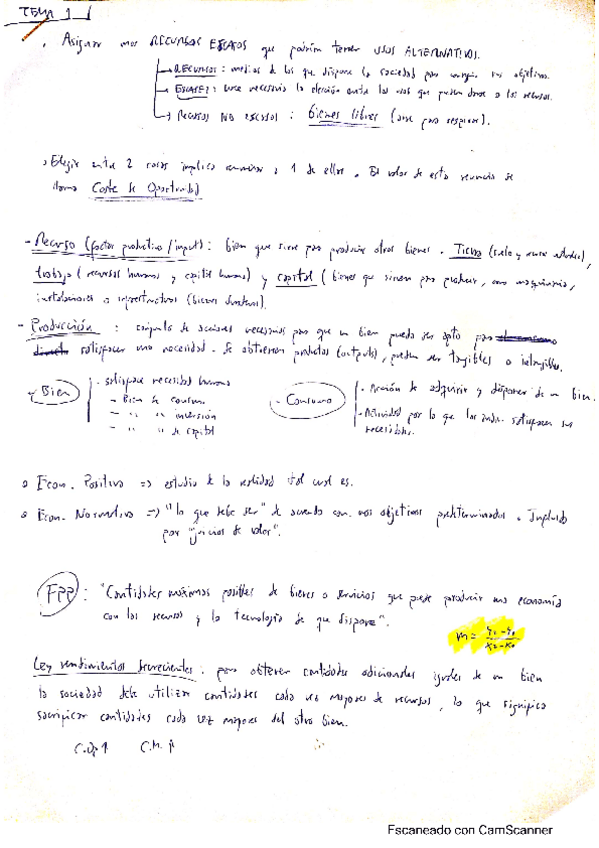 TEMA 1
• Asignar unos RECURSOS ESCASOS que podrían tener USOS ALTERNATIVOS.
→ RECURSOS: medios de los que dispone la sociedad para conseguir sus objetivos.
→ ESCASEZ: hace necesario la elección entre los usos que pueden darse a los recursos.
→ RECURSOS NO ESCASOS: bienes libres (aire para respirar).
• Elegir entre 2 cosas implica renunciar a 1 de ellas. El valor de esta renuncia se
llama Coste de Oportunidad
- Recurso (factor productivo/input): bien que sirve para producir otros bienes. Tierra (suelo y recursos naturales),
trabajo (recursos humanos y capital humano) y capital (bienes que sirven para producir, como maquinaria,
instalaciones o infraestructuras (bienes duraderos).
- Producción: conjunto de acciones necesarias para que un bien pueda ser apto para
satisfacer una necesidad. Se obtienen productos (outputs), pueden ser tangibles o intangibles.
- Bien
- satisface necesidad humana
- Bien de consumo
- " " inversión
- " " de capital
- Consumo
- Acción de adquirir y disponer de un bien.
- Actividad por la que los indiv. satisfacen sus
necesidades.
• Econ. Positiva => estudio de la realidad tal cual es.
• Econ. Normativa => "lo que debe ser" de acuerdo con unos objetivos predeterminados. Influido
por "juicios de valor".
FPP: "Cantidades máximas posibles de bienes o servicios que puede producir una economía
con los recursos y la tecnología de que dispone".
m =
Ley rendimientos decrecientes: para obtener cantidades adicionales iguales de un bien
la sociedad debe utilizar cantidades cada vez mayores de recursos, lo que significa
sacrificar cantidades cada vez mayores del otro bien.
C.Op ↑
Escaneado con CamScanner